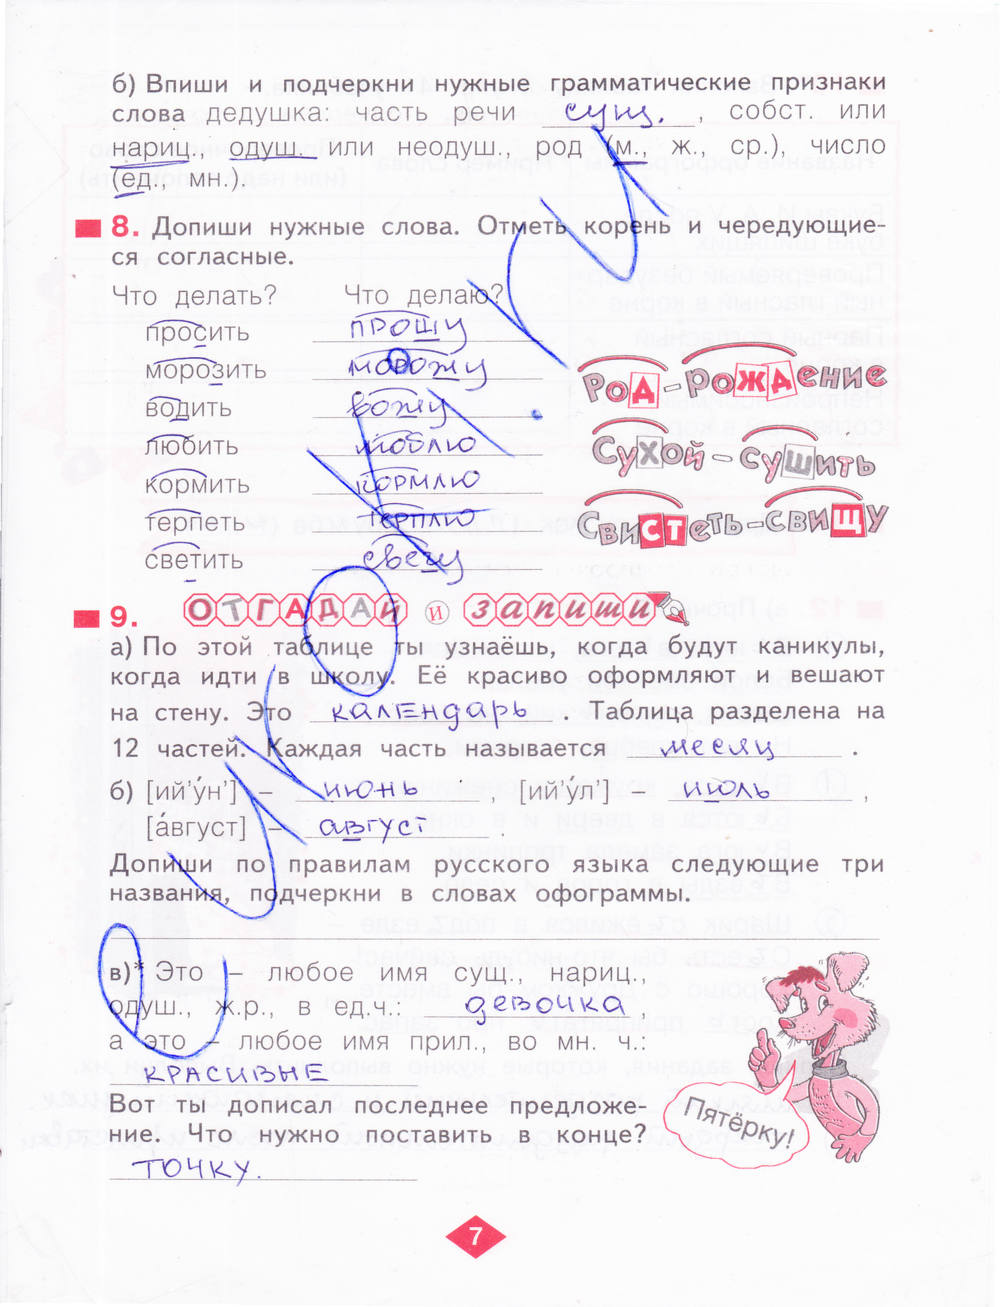 б) Впиши и подчеркни нужные грамматические признаки
слова дедушка: часть речи сущ. , собст. или
нариц., одуш. или неодуш., род (м., ж., ср.), число
(ед., мн.).
8. Допиши нужные слова. Отметь корень и чередующие-
ся согласные.
Что делать? Что делаю?
просить прошу
морозить морожу
водить вожу
любить люблю
кормить кормлю
терпеть терплю
светить свечу
Род – рождение
Сухой – сушить
Свистеть – свищу
9. ОТГАДАЙ И запиши
а) По этой таблице ты узнаёшь, когда будут каникулы,
когда идти в школу. Её красиво оформляют и вешают
на стену. Это календарь . Таблица разделена на
12 частей. Каждая часть называется месяц .
б) [ий'у́н'] – июнь , [ий'у́л'] – июль ,
[а́вгуст] – август .
Допиши по правилам русского языка следующие три
названия, подчеркни в словах офограммы.
в)* Это – любое имя сущ., нариц.,
одуш., ж.р., в ед.ч.: девочка
а это – любое имя прил., во мн. ч.:
красивые
Вот ты дописал последнее предложе-
ние. Что нужно поставить в конце?
точку.
Пятёрку!
7